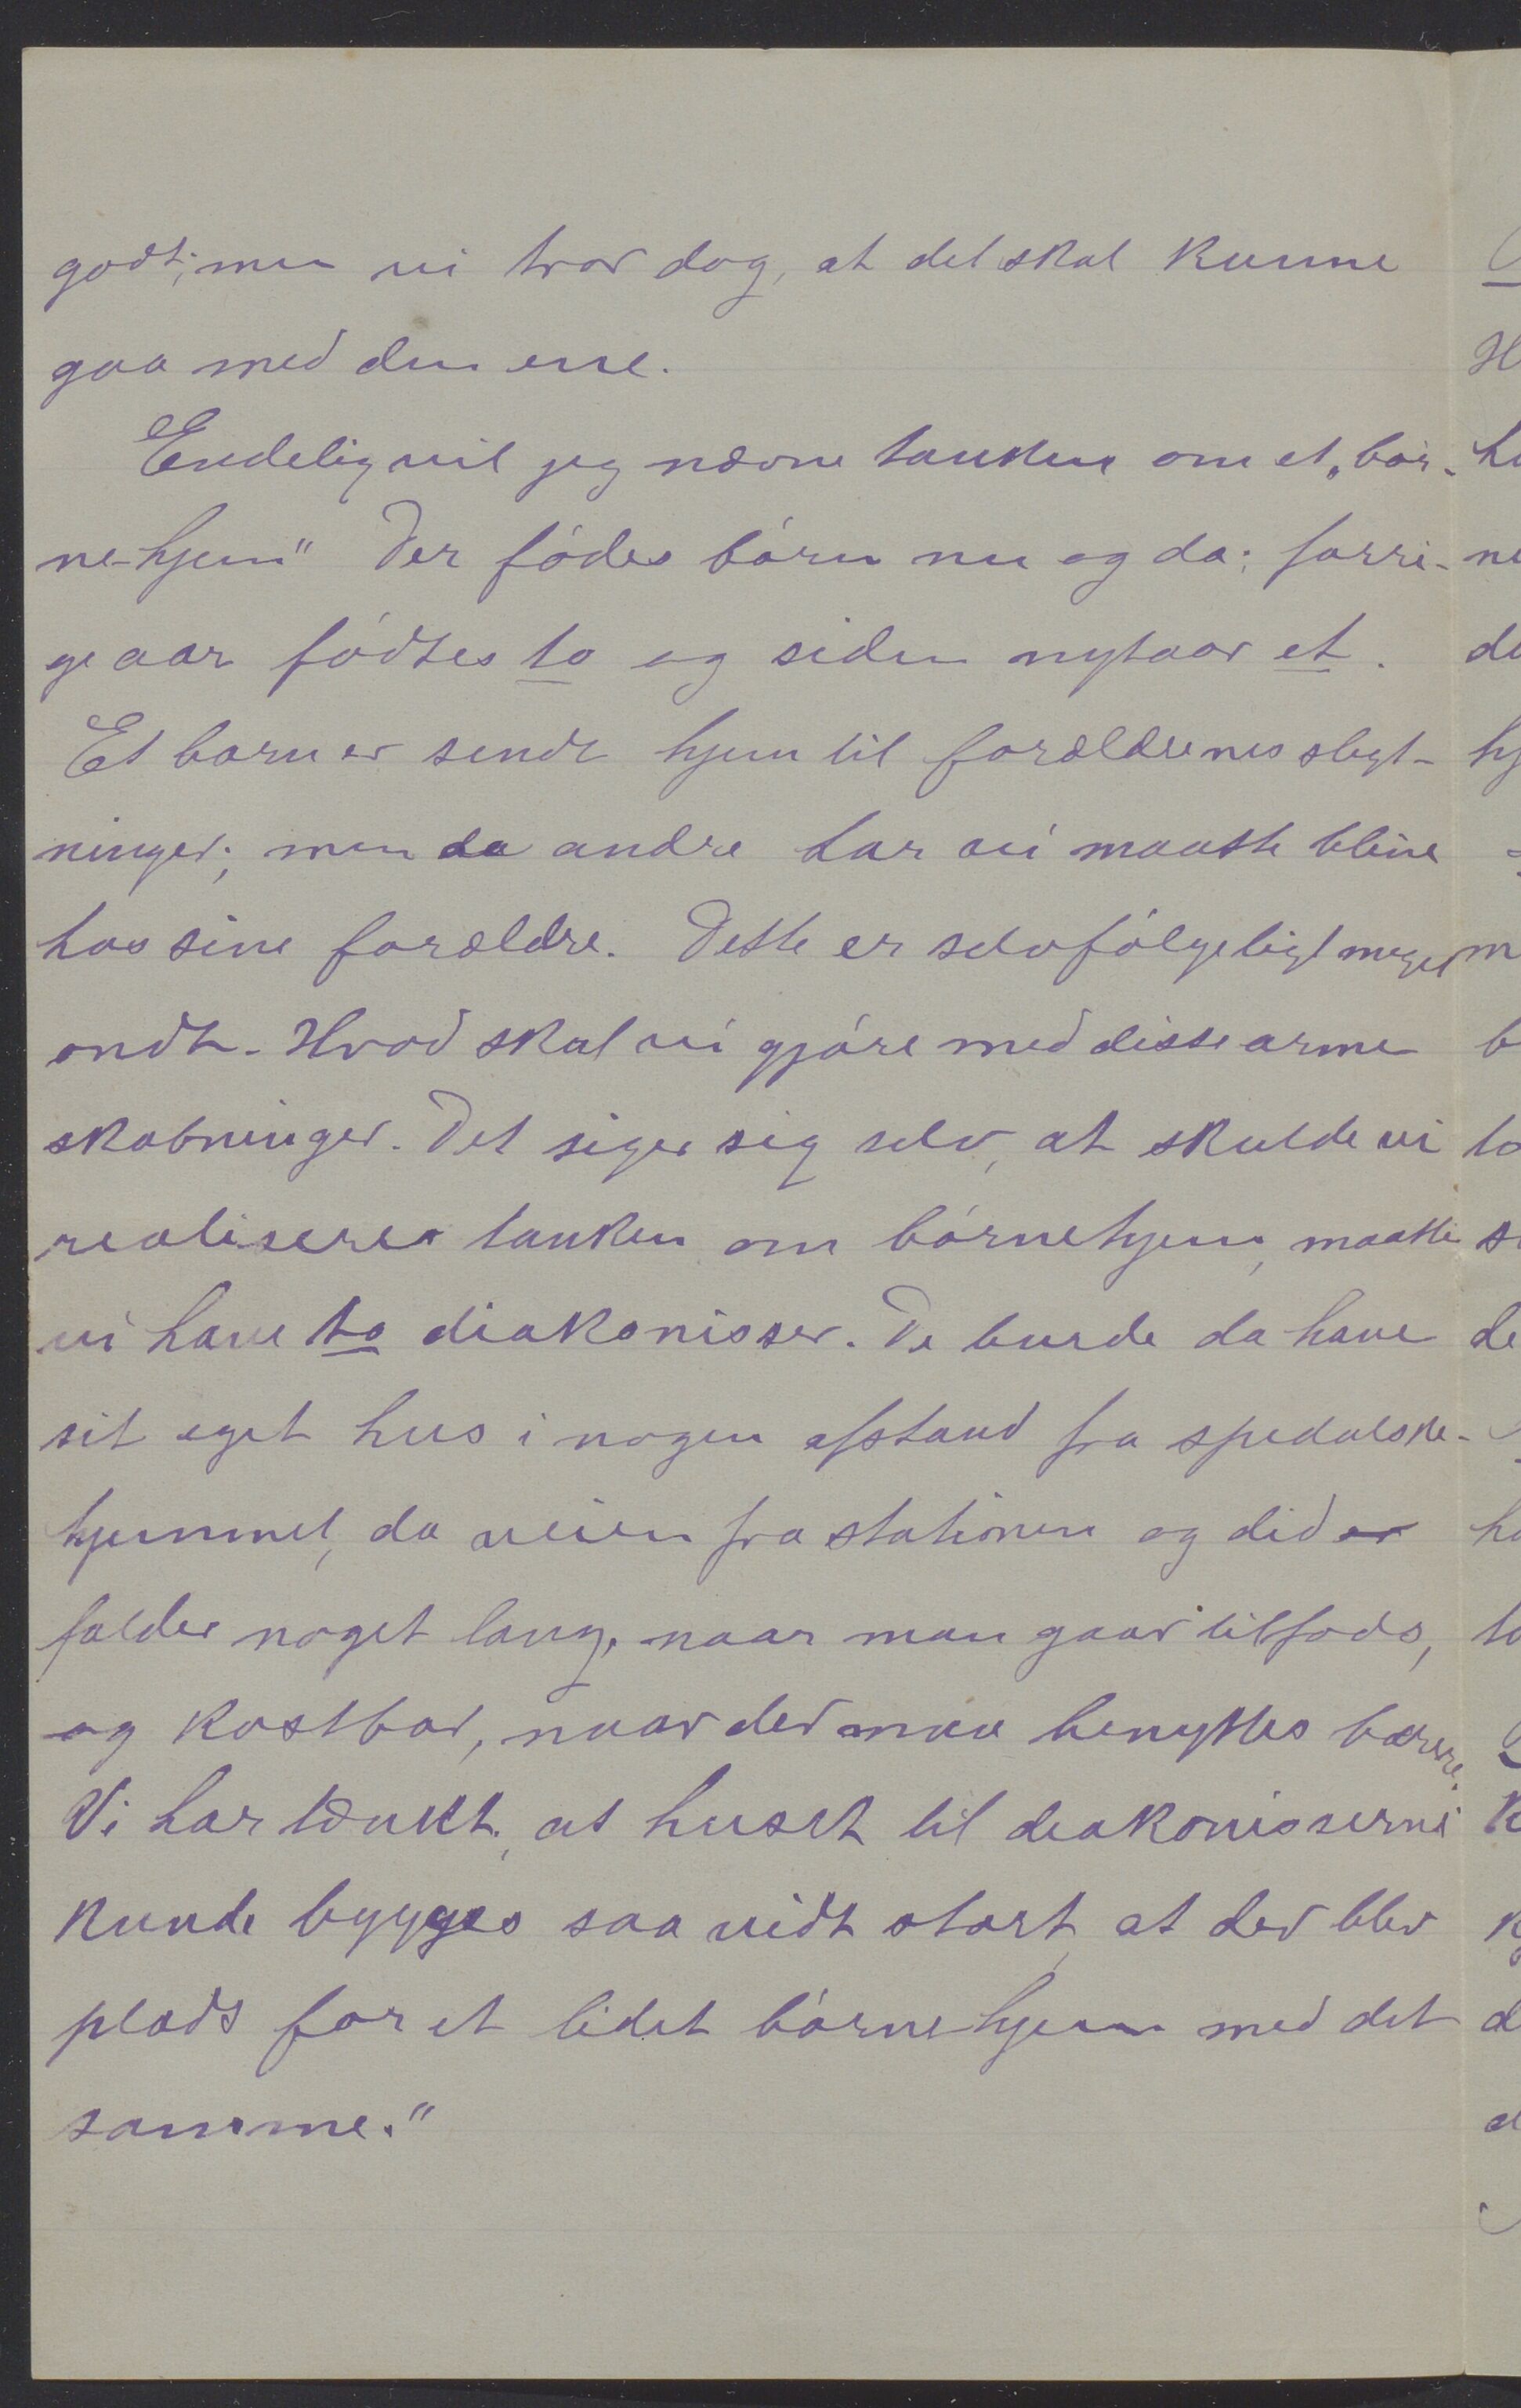 godt; men vi tror dog, at det skal kunne
gaa med den ene.
Endelig vil jeg nævne tanken om et „bør-
ne-hjem" Der fødes børn nu og da; forri-
ge aar fødtes to og siden nytaar et.
Et barn er sendt hjem til forældrenes slegt-
ninger; men de andre har vi maatte blive
hos sine forældre. Dette er selvfølgeligt meget
ondt. Hvad skal vi gjøre med disse arme
skabninger. Det siger sig selv, at skulde vi
realisere tanken om børnehjem, maatte
vi have to diakonisser. De burde da have
sit eget hus i nogen afstand fra spedalske-
hjemmet, da veien fra stationen og did er
falder noget lang, naar man gaar tilfods,
og kostbar, naar der maa benyttes bærere.
Vi har tænkt, at huset til diakonisserne
kunde bygges saa vidt stort, at der blev
plads for et lidet børnehjem med det
samme."